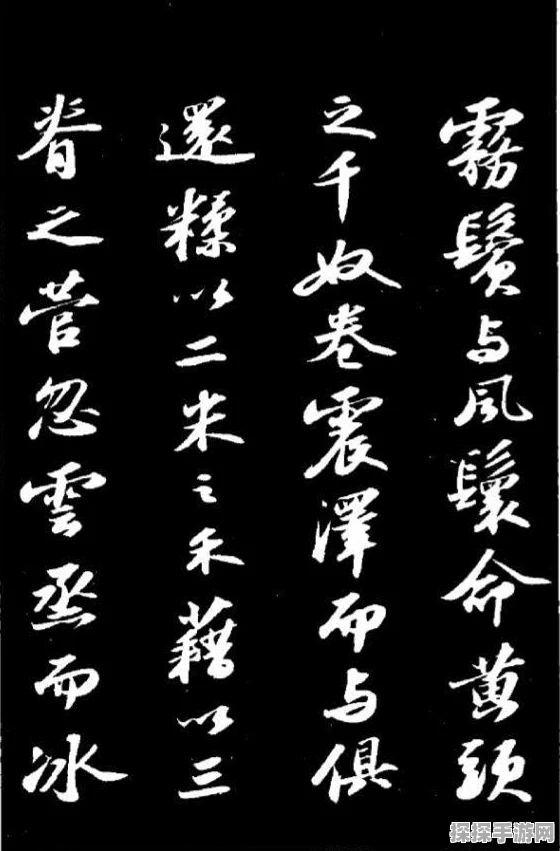 霧鬢与風鬟命黄頭
之千奴卷震澤而与
俱還糅以二米之禾
藉以三脊之菅忽雲
烝而冰
探探手游网